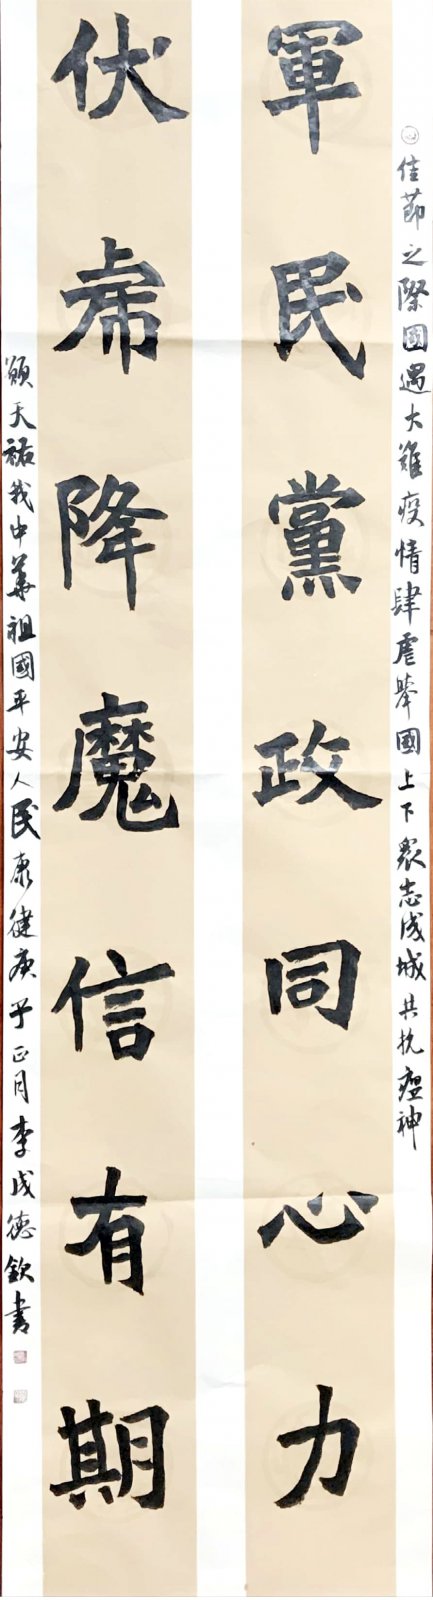 佳節之際國遇大難疫情肆虐舉國上下衆志成城共抗瘟神
軍民黨政同心力
伏虎降魔信有期
願天祐我中華祖國平安人民康健庚子正月李成德欽書